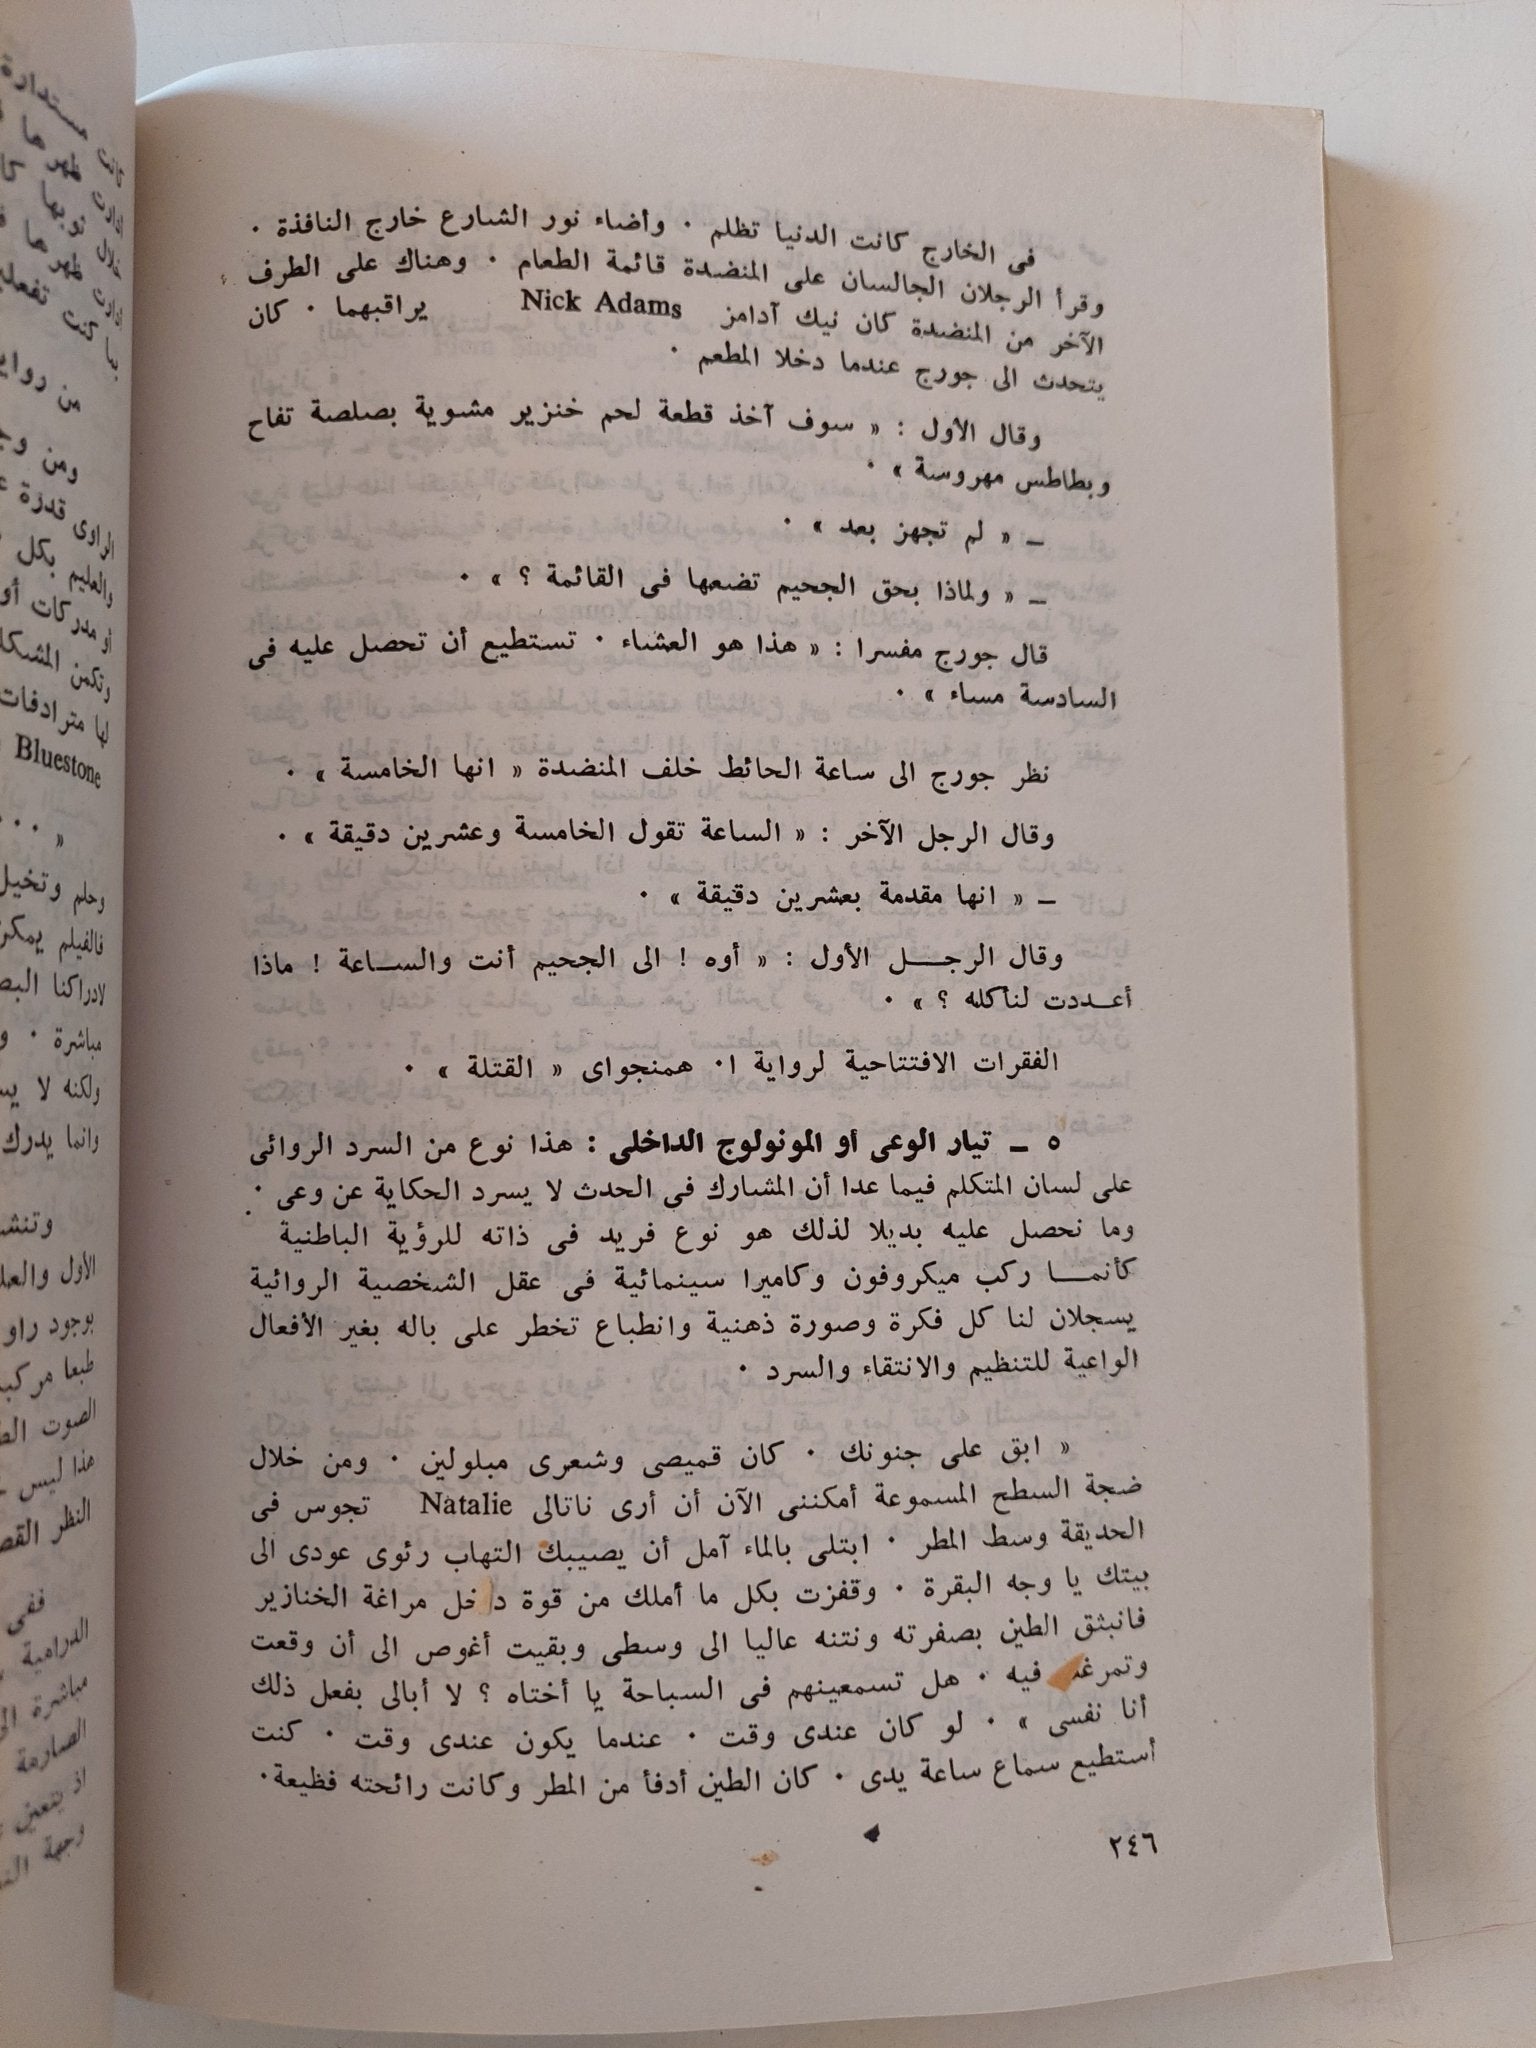 فى الخارج كانت الدنيا تظلم · وأضاء نور الشارع خارج النافذة ·
وقرأ الرجلان الجالسان على المنضدة قائمة الطعام · وهناك على الطرف
الآخر من المنضدة كان نيك آدامز Nick Adams يراقبهما · كان
يتحدث الى جورج عندما دخلا المطعم ·
وقال الأول : « سوف آخذ قطعة لحم خنزير مشوية بصلصة تفاح
وبطاطس مهروسة » ·
ــ « لم تجهز بعد » ·
ــ « ولماذا بحق الجحيم تضعها فى القائمة ؟ » ·
قال جورج مفسرا : « هذا هو العشاء · تستطيع أن تحصل عليه فى
السادسة مساء » ·
نظر جورج الى ساعة الحائط خلف المنضدة « انها الخامسة » ·
وقال الرجل الآخر : « الساعة تقول الخامسة وعشرين دقيقة » ·
ــ « انها مقدمة بعشرين دقيقة » ·
وقال الرجـــل الأول : « أوه ! الى الجحيم أنت والســاعة ! ماذا
أعــددت لنأكله ؟ » ·
الفقرات الافتتاحية لرواية ا· همنجواى « القتلة » ·
٥ ــ تيار الوعى أو المونولوج الداخلى : هذا نوع من السرد الروائى
على لسان المتكلم فيما عدا أن المشارك فى الحدث لا يسرد الحكاية عن وعى ·
وما نحصل عليه بديلا لذلك هو نوع فريد فى ذاته للرؤية الباطنية
كأنمـــا ركب ميكروفون وكاميرا سينمائية فى عقل الشخصية الروائية
يسجلان لنا كل فكرة وصورة ذهنية وانطباع تخطر على باله بغير الأفعال
الواعية للتنظيم والانتقاء والسرد ·
« ابق على جنونك · كان قميصى وشعرى مبلولين · ومن خلال
ضجة السطح المسموعة أمكننى الآن أن أرى ناتالى Natalie تجوس فى
الحديقة وسط المطر · ابتلى بالماء آمل أن يصيبك التهاب رئوى عودى الى
بيتك يا وجه البقرة · وقفزت بكل ما أملك من قوة داخل مراغة الخنازير
فانبثق الطين بصفرته ونتنه عاليا الى وسطى وبقيت أغوص الى أن وقعت
وتمرغت فيه · هل تسمعينهم فى السباحة يا أختاه ؟ لا أبالى بفعل ذلك
أنا نفسى » · لو كان عندى وقت · عندما يكون عندى وقت · كنت
أستطيع سماع ساعة يدى · كان الطين أدفأ من المطر وكانت رائحته فظيعة·
٢٤٦